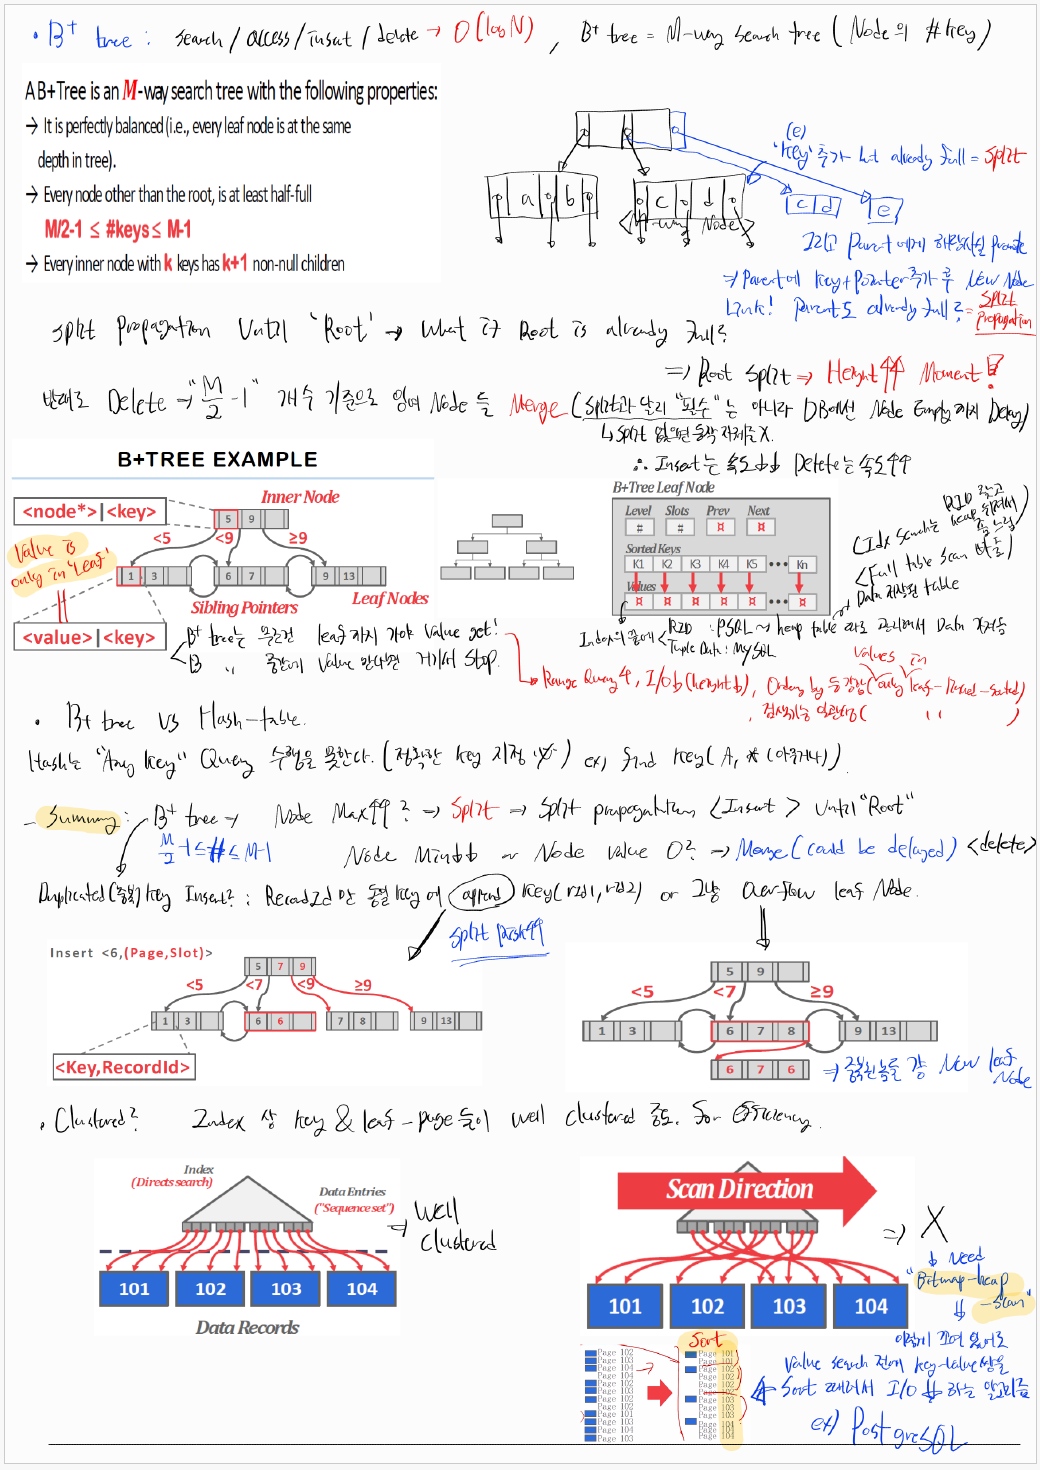 • B+ tree : search / access / insert / delete → O(logN) , B+ tree = M-way search tree (Node의 #key)
A B+Tree is an M-way search tree with the following properties:
→ It is perfectly balanced (i.e., every leaf node is at the same
depth in tree).
→ Every node other than the root, is at least half-full
M/2-1 ≤ #keys ≤ M-1
→ Every inner node with k keys has k+1 non-null children
(e)
'key' 추가 but already full = split
a b
c d
<M-way Node>
c d
e
그리고 Parent에게
⇒ Parent에 key+pointer 추가 후 New Node
Link! Parent도 already full? = split propagation
split Propagation Until 'Root' → What if Root is already full?
⇒ Root split ⇒ Height↑↑ Moment!
반대로 Delete → "M/2 -1" 개수 기준으로 잉여 Node 들 Merge (split과 달리 "필수"는 아니라 DB에선 Node Empty까지 Delay)
↳ split 없으면 동작 자체를 X.
∴ Insert는 속도↓↓ Delete는 속도↑↑
B+TREE EXAMPLE
<node*>|<key>
Inner Node
5 9
<5 <9 ≥9
Value is
only in 'Leaf'
1 3
6 7
9 13
Sibling Pointers
Leaf Nodes
<value>|<key>
B+Tree Leaf Node
Level Slots Prev Next
# # ¤ ¤
Sorted Keys
K1 K2 K3 K4 K5 ••• Kn
Values
¤ ¤ ¤ ¤ ¤ ••• ¤
(Idx Search는 RID 갖고 heap 뒤져서 좀 느림)
<Full table scan
Data 저장된 table
B+ tree는 무조건 leaf까지 가야 value get!
B 〃 중간에 value 만나면 거기서 stop.
Index의 끝에 < RID : PSQL → heap table 따로 관리해서 Data
Tuple Data : MySQL
→ Range Query↑, I/O↓(height↓), Order by 등 강함(only leaf-linked-sorted)
values in
, 검색기능 일관성( 〃 )
• B+ tree vs Hash-table.
Hash는 "Any key" Query 수행을 못한다. (정확한 key 지정 ) ex) find key(A, * (아무거나))
- Summary : B+ tree → Node Max↑↑? ⇒ Split ⇒ Split propagation <Insert> until "Root"
M/2 -1 ≤ # ≤ M-1
Node Min↓↓ or Node value 0? ⇒ Merge (could be delayed) <delete>
Duplicated(중복) key Insert? : RecordId 만 동일 key에 append key(rid1, rid2) or 그냥 Overflow leaf Node.
split 발생↑↑
Insert <6,(Page,Slot)>
5 7 9
<5 <7 <9 ≥9
1 3
6 6
7 8
9 13
<Key,RecordId>
5 9
<5 <7 ≥9
1 3
6 7 8
9 13
6 7 6
⇒ 중복된 놈들 걍 New leaf Node
• Clustered? Index 상 key & leaf-page들이 well clustered 정도. for Efficiency.
Index
(Directs search)
Data Entries
("Sequence set")
⇒ Well
clustered
101 102 103 104
Data Records
Scan Direction
101 102 103 104
⇒ X
↓ need
"Bitmap-heap
-scan"
이렇게 꼬여 있으므로
Value search 전에 key-value쌍을
Sort 때려서 I/O ↓ 하는 알고리즘
ex) PostgreSQL
Sort
Page 102
Page 103
Page 104
Page 104
Page 102
Page 103
Page 102
Page 102
Page 101
Page 103
Page 104
Page 103
Page 101
Page 101
Page 102
Page 102
Page 102
Page 102
Page 103
Page 103
Page 103
Page 104
Page 104
Page 104